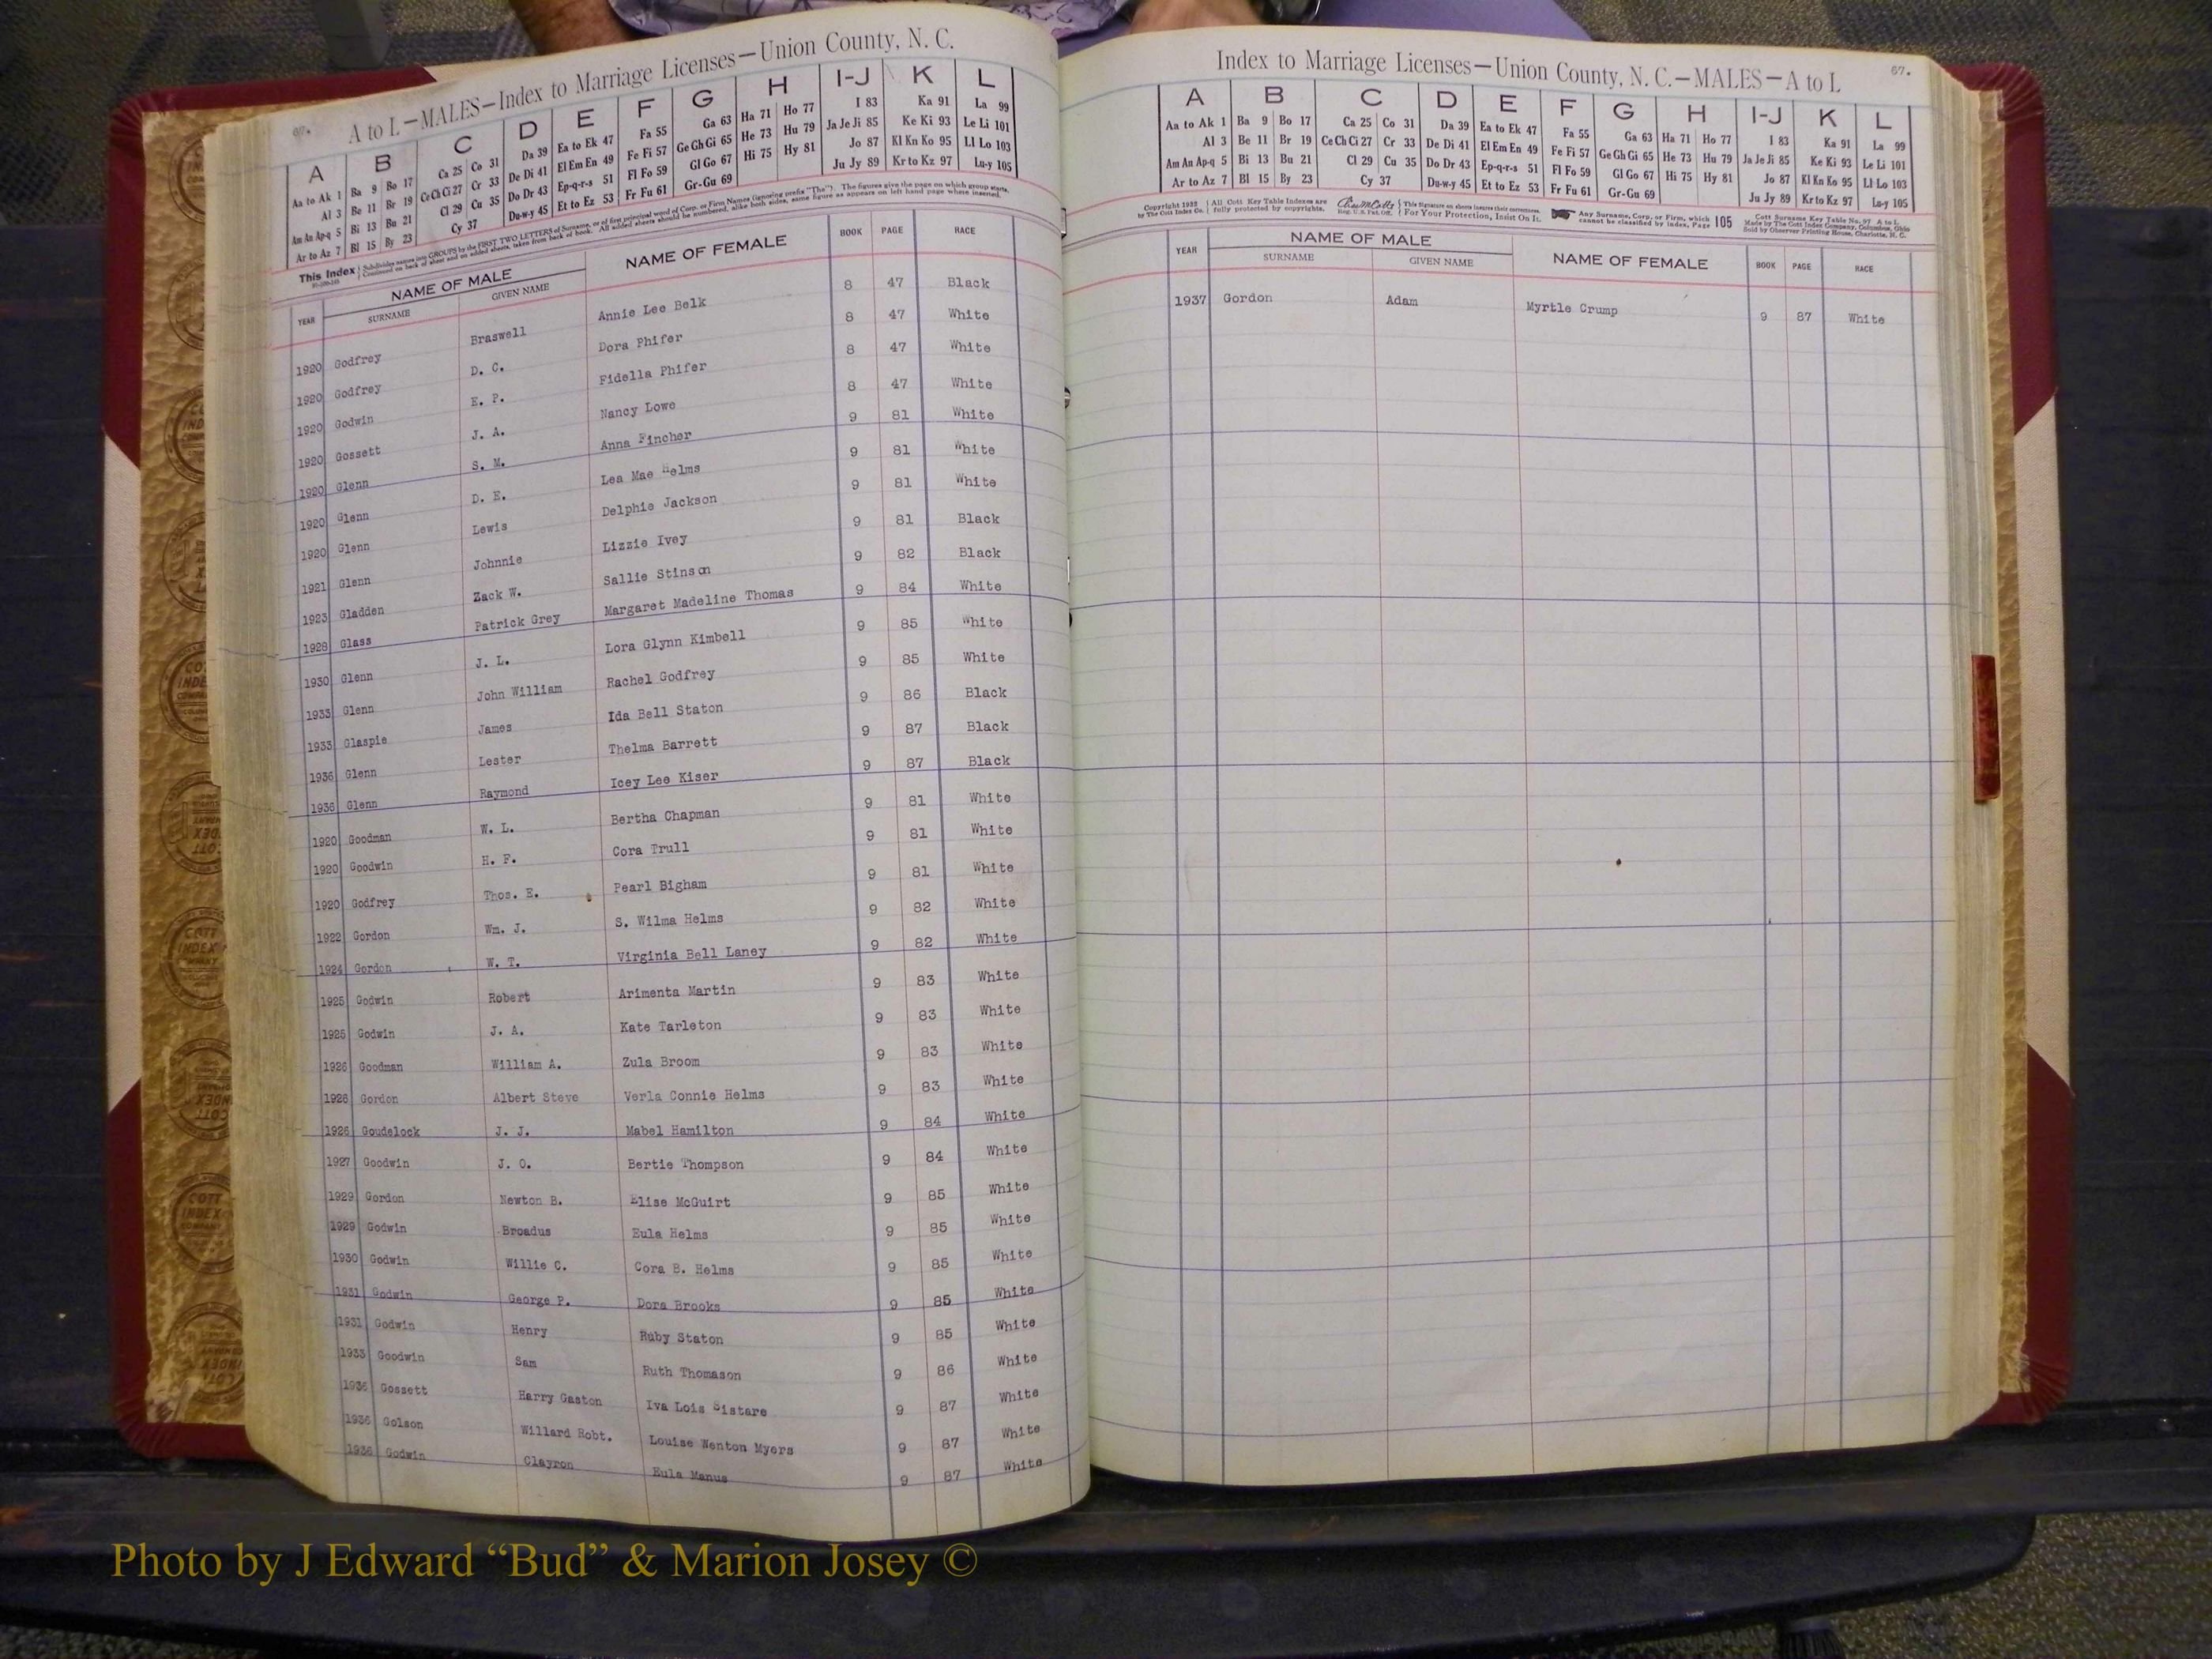 67.
A to L—MALES—Index to Marriage Licenses—Union County, N. C.
A B C D E F G H I-J K L
Aa to Ak 1 Ba 9 Bo 17 Ca 25 Co 31 Da 39 Ea to Ek 47 Fa 55 Ga 63 Ha 71 Ho 77 I 83 Ka 91 La 99
Al 3 Be 11 Br 19 Ce Ch Ci 27 Cr 33 De Di 41 El Em En 49 Fe Fi 57 Ge Gh Gi 65 He 73 Hu 79 Ja Je Ji 85 Ke Ki 93 Le Li 101
Am An Ap-q 5 Bi 13 Bu 21 Cl 29 Cu 35 Do Dr 43 Ep-q-r-s 51 Fl Fo 59 Gl Go 67 Hi 75 Hy 81 Jo 87 Kl Kn Ko 95 Ll Lo 103
Ar to Az 7 Bl 15 By 23 Cy 37 Du-w-y 45 Et to Ez 53 Fr Fu 61 Gr-Gu 69 Ju Jy 89 Kr to Kz 97 Lu-y 105
This Index { Subdivides names into GROUPS by the FIRST TWO LETTERS of Surname, or of first principal word of Corp. or Firm Names (ignoring prefix "The"). The figures give the page on which group starts.
Continued on back of sheet and on added sheets, taken from back of book. All added sheets should be numbered, alike both sides, same figure as appears on left hand page where inserted.
YEAR NAME OF MALE SURNAME GIVEN NAME NAME OF FEMALE BOOK PAGE RACE
1920 Godfrey Braswell Annie Lee Belk 8 47 Black
1920 Godfrey D. C. Dora Phifer 8 47 White
1920 Godwin E. P. Fidella Phifer 8 47 White
1920 Gossett J. A. Nancy Lowe 8 47 White
1920 Glenn S. M. Anna Fincher 9 81 White
1920 Glenn D. E. Lea Mae Helms 9 81 White
1920 Glenn Lewis Delphie Jackson 9 81 White
1921 Glenn Johnnie Lizzie Ivey 9 81 Black
1923 Gladden Zack W. Sallie Stinson 9 82 Black
1928 Glass Patrick Grey Margaret Madeline Thomas 9 84 White
1930 Glenn J. L. Lora Glynn Kimbell 9 85 White
1933 Glenn John William Rachel Godfrey 9 85 White
1933 Glaspie James Ida Bell Staton 9 86 Black
1936 Glenn Lester Thelma Barrett 9 87 Black
1936 Glenn Raymond Icey Lee Kiser 9 87 Black
1920 Goodman W. L. Bertha Chapman 9 81 White
1920 Goodwin H. F. Cora Trull 9 81 White
1920 Godfrey Thos. E. Pearl Bigham 9 81 White
1922 Gordon Wm. J. S. Wilma Helms 9 82 White
1924 Gordon W. T. Virginia Bell Laney 9 82 White
1925 Godwin Robert Arimenta Martin 9 83 White
1925 Godwin J. A. Kate Tarleton 9 83 White
1926 Goodman William A. Zula Broom 9 83 White
1926 Gordon Albert Steve Verla Connie Helms 9 83 White
1926 Goudelock J. J. Mabel Hamilton 9 84 White
1927 Goodwin J. O. Bertie Thompson 9 84 White
1929 Gordon Newton B. Elise McGuirt 9 85 White
1929 Godwin Broadus Eula Helms 9 85 White
1930 Godwin Willie C. Cora B. Helms 9 85 White
1931 Godwin George P. Dora Brooks 9 85 White
1931 Godwin Henry Ruby Staton 9 85 White
1933 Goodwin Sam Ruth Thomason 9 86 White
1936 Gossett Harry Gaston Iva Lois Sistare 9 87 White
1936 Golson Willard Robt. Louise Wenton Myers 9 87 White
1936 Godwin Clayron Eula Manus 9 87 White
Index to Marriage Licenses—Union County, N. C.—MALES—A to L
67.
A B C D E F G H I-J K L
Aa to Ak 1 Ba 9 Bo 17 Ca 25 Co 31 Da 39 Ea to Ek 47 Fa 55 Ga 63 Ha 71 Ho 77 I 83 Ka 91 La 99
Al 3 Be 11 Br 19 Ce Ch Ci 27 Cr 33 De Di 41 El Em En 49 Fe Fi 57 Ge Gh Gi 65 He 73 Hu 79 Ja Je Ji 85 Ke Ki 93 Le Li 101
Am An Ap-q 5 Bi 13 Bu 21 Cl 29 Cu 35 Do Dr 43 Ep-q-r-s 51 Fl Fo 59 Gl Go 67 Hi 75 Hy 81 Jo 87 Kl Kn Ko 95 Ll Lo 103
Ar to Az 7 Bl 15 By 23 Cy 37 Du-w-y 45 Et to Ez 53 Fr Fu 61 Gr-Gu 69 Ju Jy 89 Kr to Kz 97 Lu-y 105
Copyright 1932 by The Cott Index Co. { All Cott Key Table Indexes are fully protected by copyrights. Reg. U. S. Pat. Off. { This Signature on sheets insures their correctness. For Your Protection, Insist On It. Any Surname, Corp. or Firm, which cannot be classified by index, Page 105 Cott Surname Key Table No. 97 A to L Made by The Cott Index Company, Columbus, Ohio Sold by Observer Printing House, Charlotte, N. C.
YEAR NAME OF MALE SURNAME GIVEN NAME NAME OF FEMALE BOOK PAGE RACE
1937 Gordon Adam Myrtle Crump 9 87 White
Photo by J Edward “Bud” & Marion Josey ©